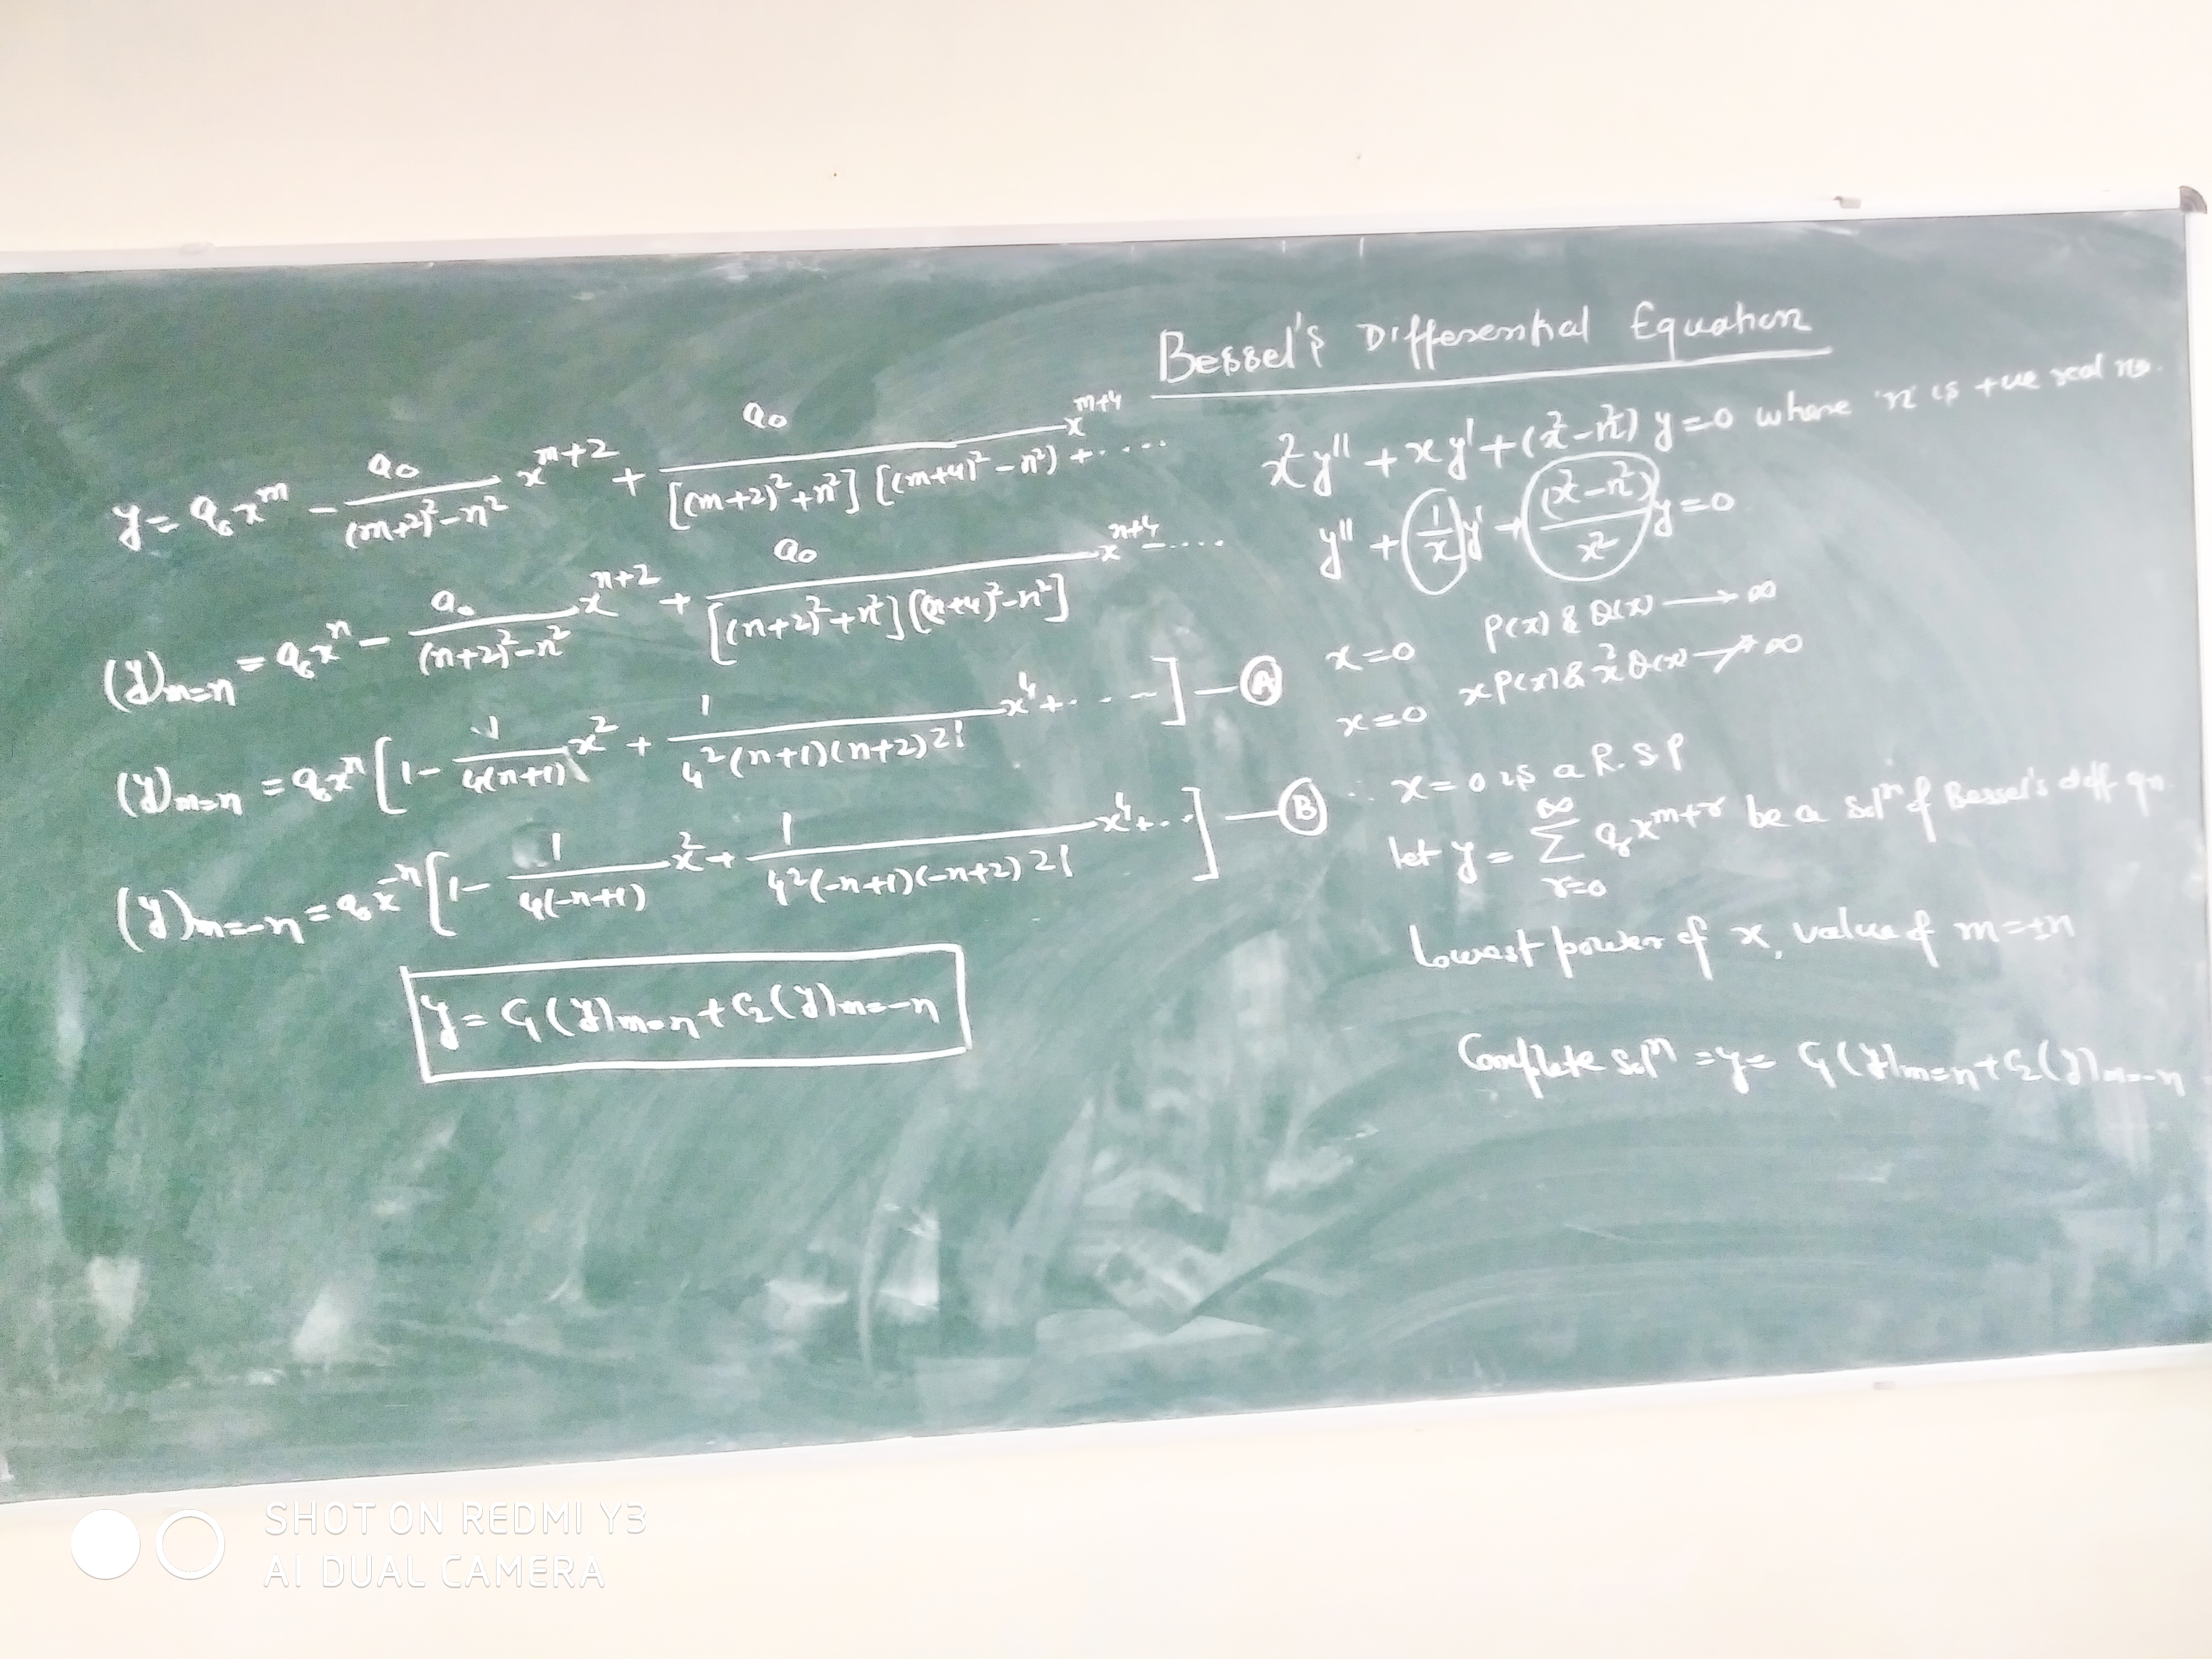 Bessel's Differential Equation
x²y'' + xy' + (x²-n²) y = 0 where 'n' is +ve real no.
y'' + (1/x) y' + ((x²-n²)/x²) y = 0
x=0 P(x) & Q(x) → ∞
x=0 xP(x) & x²Q(x) ↛ ∞
∴ x=0 is a R.S.P
let y = ∞∑r=0 aᵣ x^(m+r) be a solⁿ of Bessel's diff qn.
Lowest power of x, value of m=±n
Complete solⁿ = y = C₁(y)m=n + C₂(y)m=-n
y = a₀x^m - a₀/((m+2)²-n²) x^(m+2) + a₀/([(m+2)²+n²][(m+4)²-n²)) x^(m+4) + ....
(y)m=n = a₀x^n - a₀/((n+2)²-n²) x^(n+2) + a₀/([(n+2)²+n²][(n+4)²-n²]) x^(n+4) - ....
(y)m=n = a₀x^n [1 - 1/(4(n+1)) x² + 1/(4²(n+1)(n+2)2!) x⁴ + .....] — (A)
(y)m=-n = a₀x^-n [1 - 1/(4(-n+1)) x² + 1/(4²(-n+1)(-n+2)2!) x⁴ + ...] — (B)
y = C₁(y)m=n + C₂(y)m=-n
SHOT ON REDMI Y3
AI DUAL CAMERA